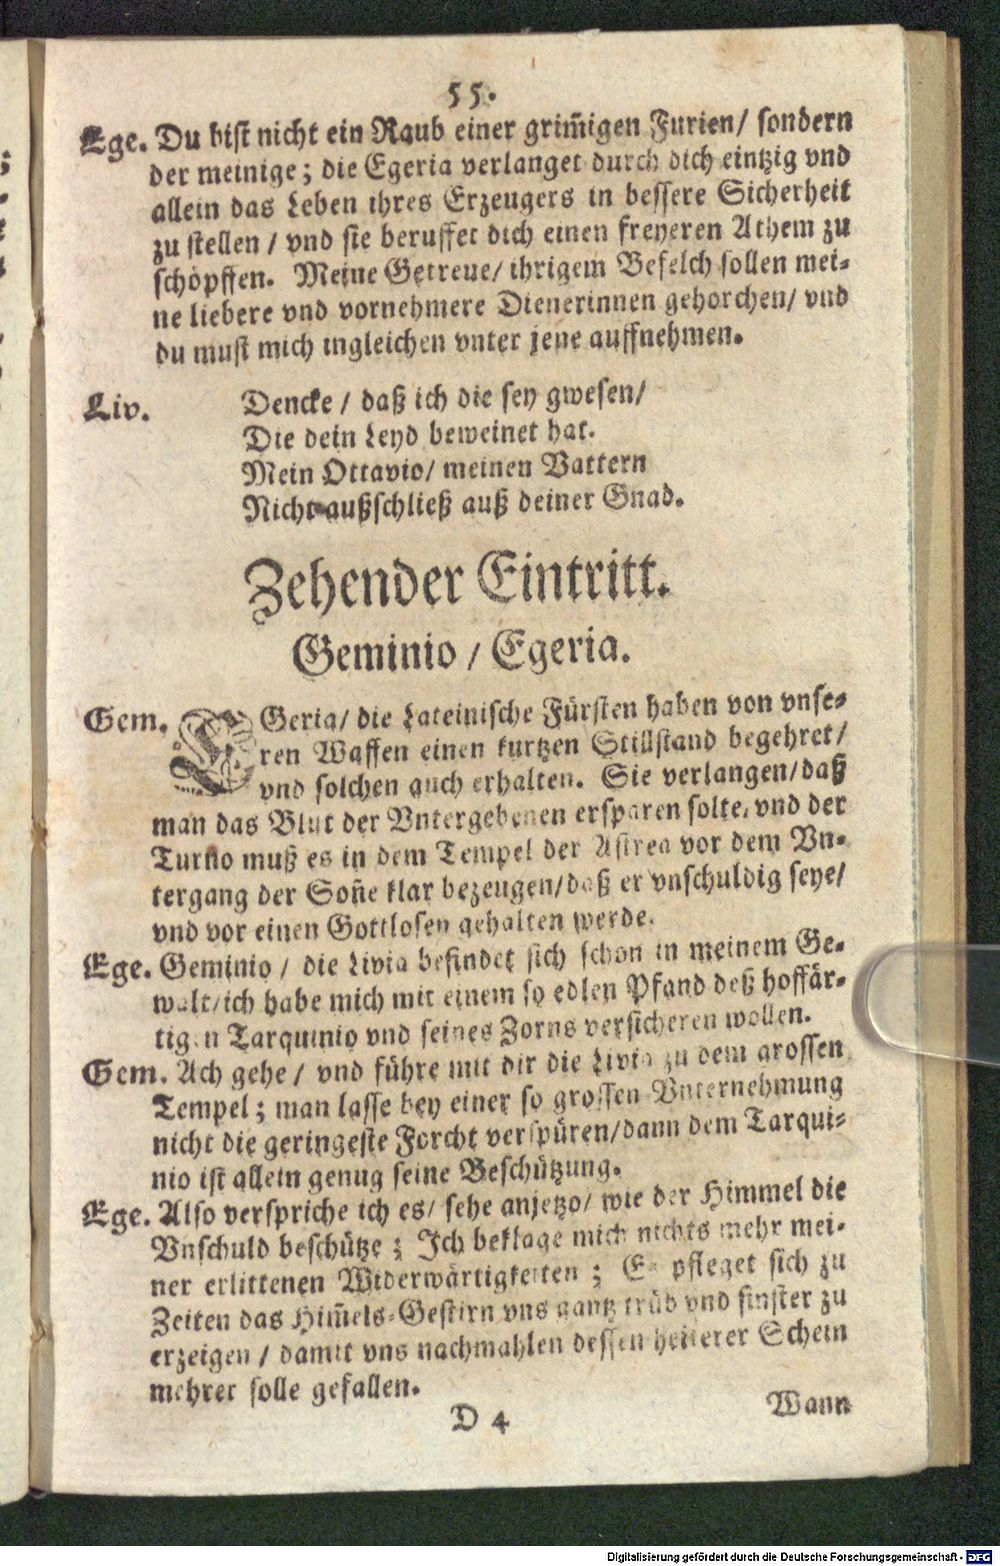 55.
Ege. Du bist nicht ein Raub einer grim̃igen Furien/ sondern
der meinige; die Egeria verlanget durch dich eintzig vnd
allein das Leben ihres Erzeugers in bessere Sicherheit
zu stellen / vnd sie beruffet dich einen freyeren Athem zu
schöpffen. Meine Getreue/ ihrigem Befelch sollen mei-
ne liebere vnd vornehmere Dienerinnen gehorchen/ vnd
du must mich ingleichen vnter jene auffnehmen.
Liv. Dencke / daß ich die sey gwesen/
Die dein Leyd beweinet hat.
Mein Ottavio/ meinen Vattern
Nicht außschließ auß deiner Gnad.
Zehender Eintritt.
Geminio / Egeria.
Gem. EGeria/ die Lateinische Fürsten haben von vnse-
ren Waffen einen kurtzen Stillstand begehret/
vnd solchen auch erhalten. Sie verlangen/daß
man das Blut der Vntergebenen ersparen solte, vnd der
Turno muß es in dem Tempel der Astrea vor dem Vn-
tergang der Soñe klar bezeugen/daß er vnschuldig seye/
vnd vor einen Gottlosen gehalten werde.
Ege. Geminio / die Livia befindet sich schon in meinem Ge-
walt/ich habe mich mit einem so edlen Pfand deß hoffär-
tigen Tarquinio vnd seines Zorns versicheren wollen.
Gem. Ach gehe / vnd führe mit dir die Livia zu dem grossen
Tempel; man lasse bey einer so grossen Vnternehmung
nicht die geringeste Forcht verspüren/dann dem Tarqui-
nio ist allein genug seine Beschützung.
Ege. Also verspriche ich es/ sehe anjetzo/ wie der Himmel die
Vnschuld beschütze; Ich beklage mich nichts mehr mei-
ner erlittenen Widerwärtigkeiten; Es pfleget sich zu
Zeiten das Him̃els-Gestirn vns gantz trüb vnd finster zu
erzeigen / damit vns nachmahlen dessen heiterer Schein
mehrer solle gefallen.
D 4 Wann
Digitalisierung gefördert durch die Deutsche Forschungsgemeinschaft - DFG